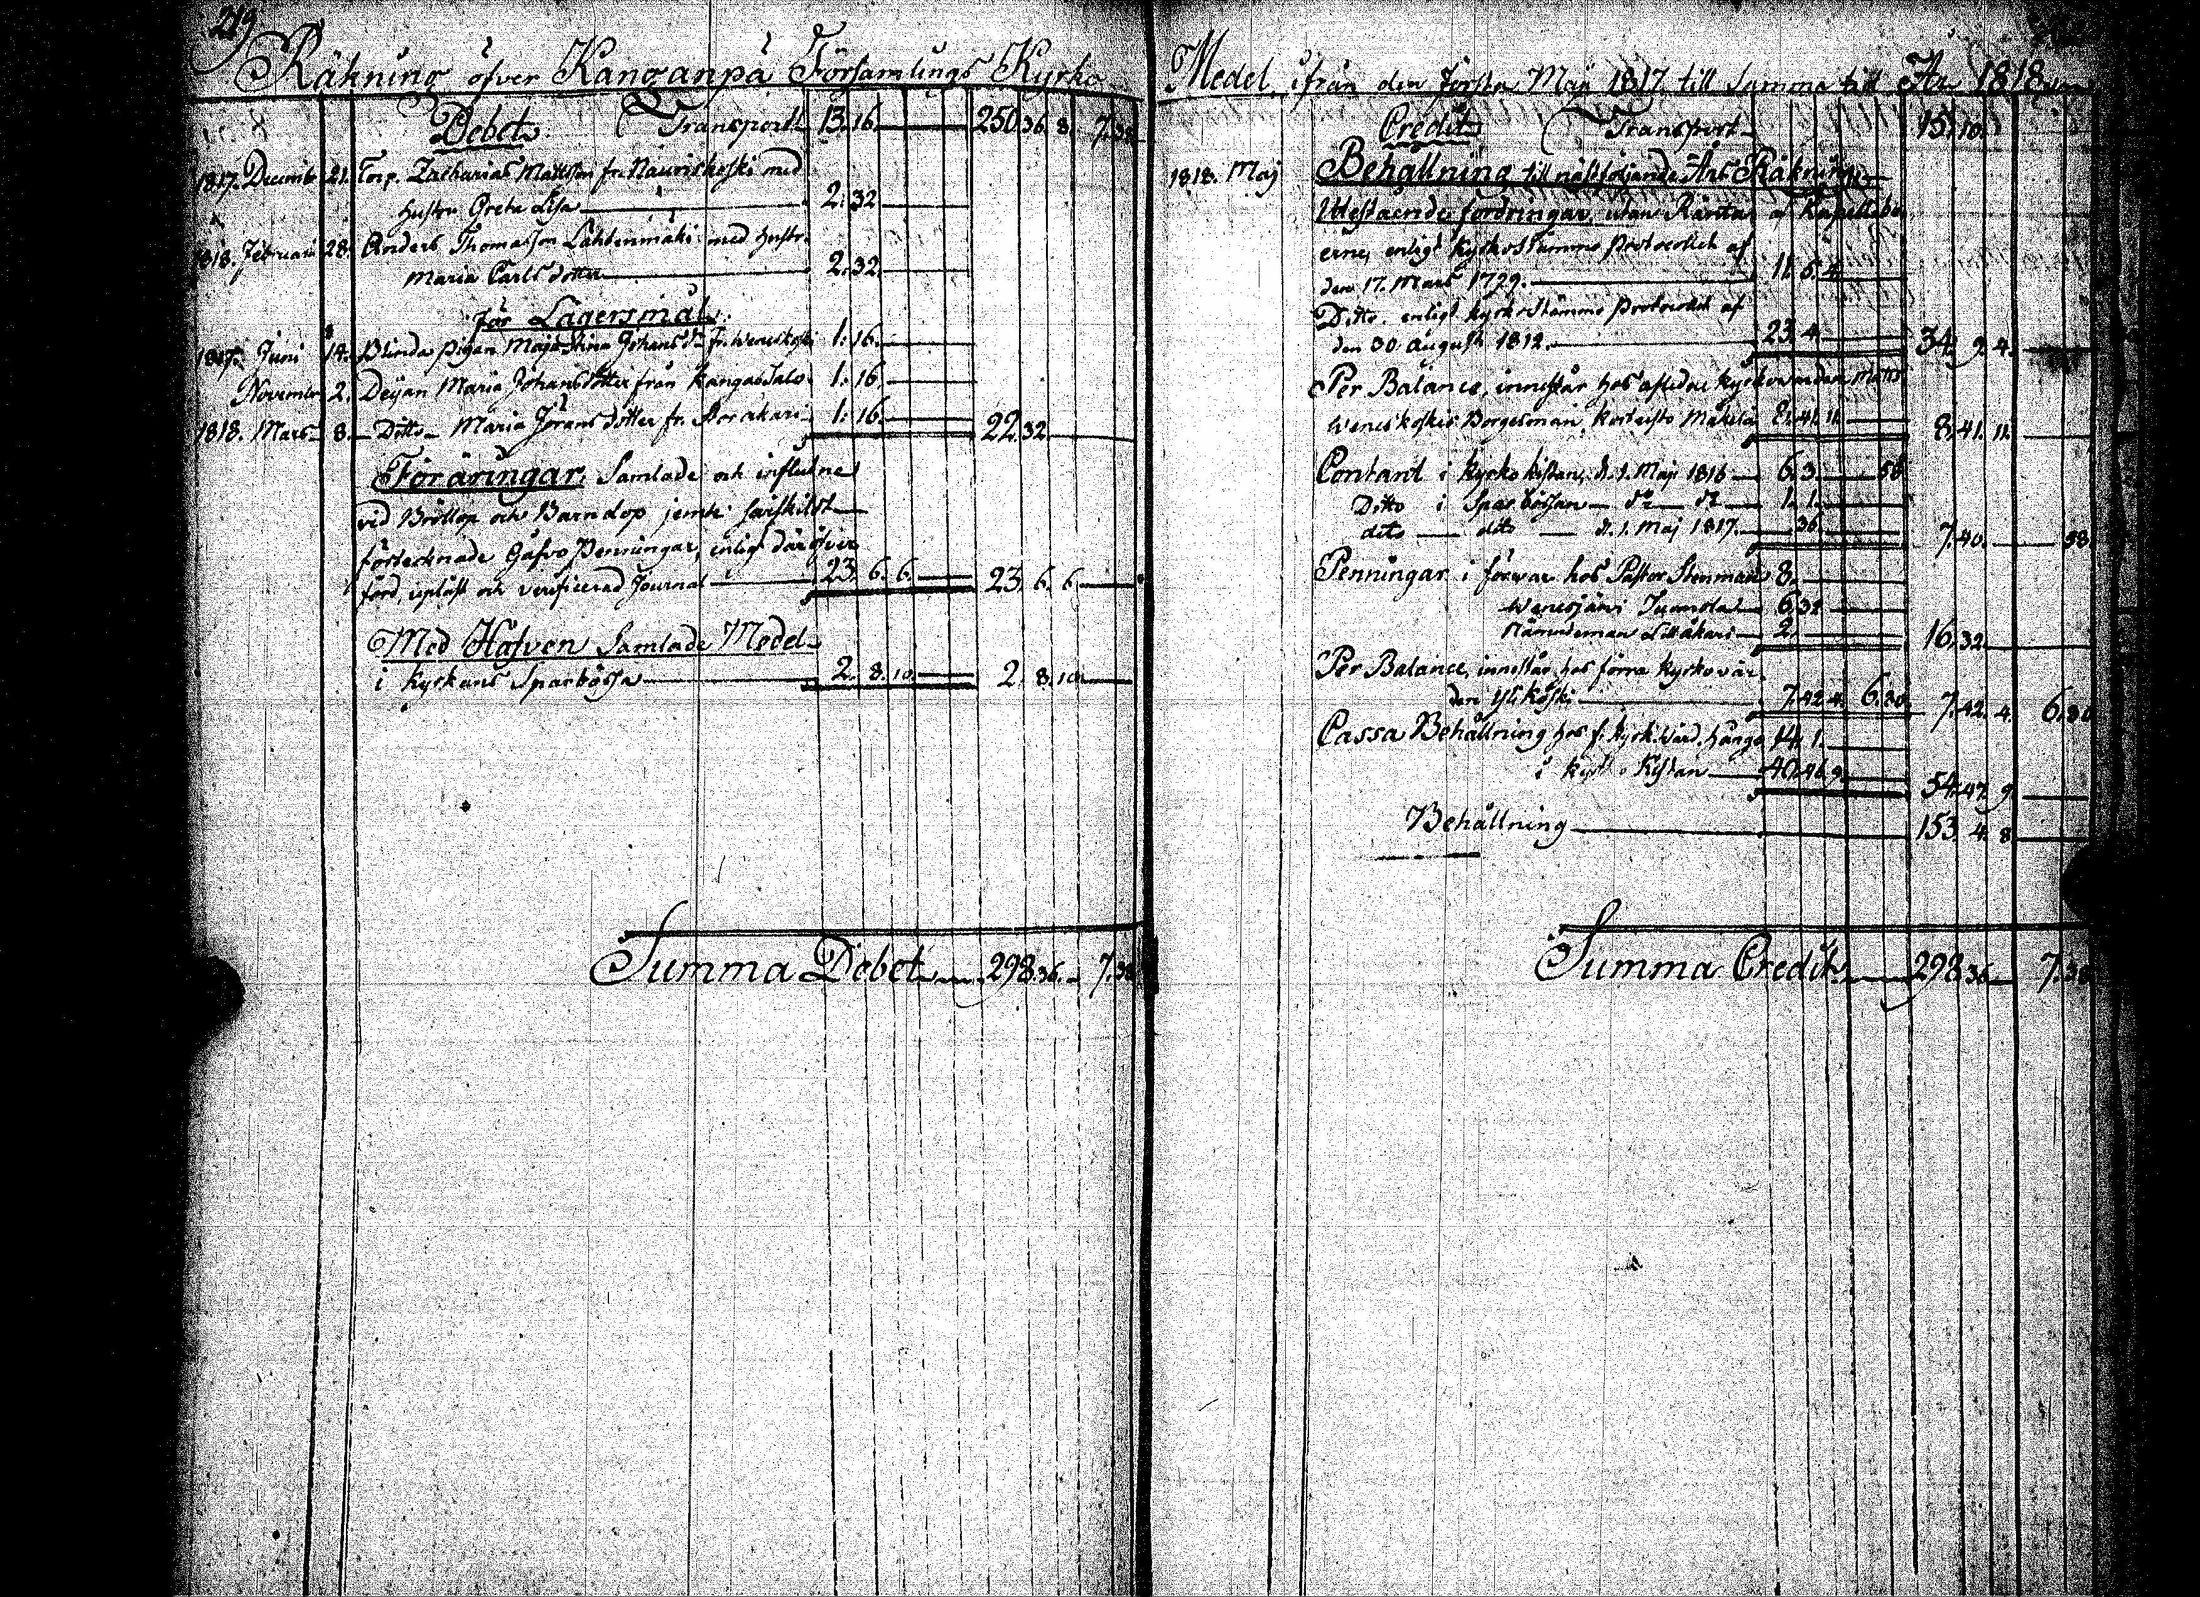 219
Räkning öfver Kanganpä Församlings Kyrko
Debet. Transport 13. 16. 250 36. 8. 7. 38
1817. Decembr 21. Torp. Zacharias Mattsson fr. Nauriskoski med
Hustru Greta Lisa 2. 32
1818. Februari 28. Anders Thomasson Lähtenmäki med Hustr.
Maria Carlsdotter 2. 32
för Lägersmål.
1817. Juni 14. Blinda Pigan Maja Stina Johans dr fr. Weneskoski 1. 16.
November 2. Deijan Maria Johansdotter från Kangassalo 1. 16.
1818. Mars 8. Ditto Maria Jörans dotter fr. Storakari 1. 16. 22. 32
Föräringar, Samlade och influtne
vid Bröllop och Barndop jemte särskildt
förtecknade Gåfvo Penningar, enligt däröfver
förd, upläst och verificerad Journal 23. 6. 6. 23. 6. 6.
Med Håfven Samlade Medel
i Kyrkans Sparbössa 2. 8. 10. 2. 8. 10.
Summa Debet 298. 36. 7. 38
Medel, ifrån den första Maji 1817 till Summa till År 1818
Credit Transport 15. 10.
1818. Maj Behållning till nästföljande Års Räkning.
Utestående fordringar, utan Räntor af Kapellebo
erne, enligt Kyrkostämmo Protocollet af
den 17. Mars 1729. 11. 5. 4
Ditto. enligt Kyrkostämmo Protocollet af
den 30 Augusti 1812. 23. 4 34. 9. 4.
Per Balance, innestår hos afledne Kyrkowärden Matts
Weneskoskis Borgesman, Mäkelä 8. 41. 11. 8. 41. 11.
Contant i Kyrko kistan, d. 1. Maji 1816 6. 3. 58
Ditto i Sparbössan do do 1. 1.
dito dito d. 1. Maj 1817. 36 7. 40. 58.
Penningar i förwar hos Pastor Stenman 8.
Wenesjärvi Juonola 6. 32
Nämndeman Lillåkari 2. 16. 32.
Per Balance, innestår hos förra Kyrkovär
den Ylikoski 7. 42. 4. 6. 30. 7. 42. 4. 6. 30
Cassa Behållning hos f. Kyrk.Wärd. Hångo 14. 1.
i Kyrko Kistan 40. 46. 9. 54. 47. 9.
Behållning 153. 4. 8
Summa Credit 298. 36 7. 38